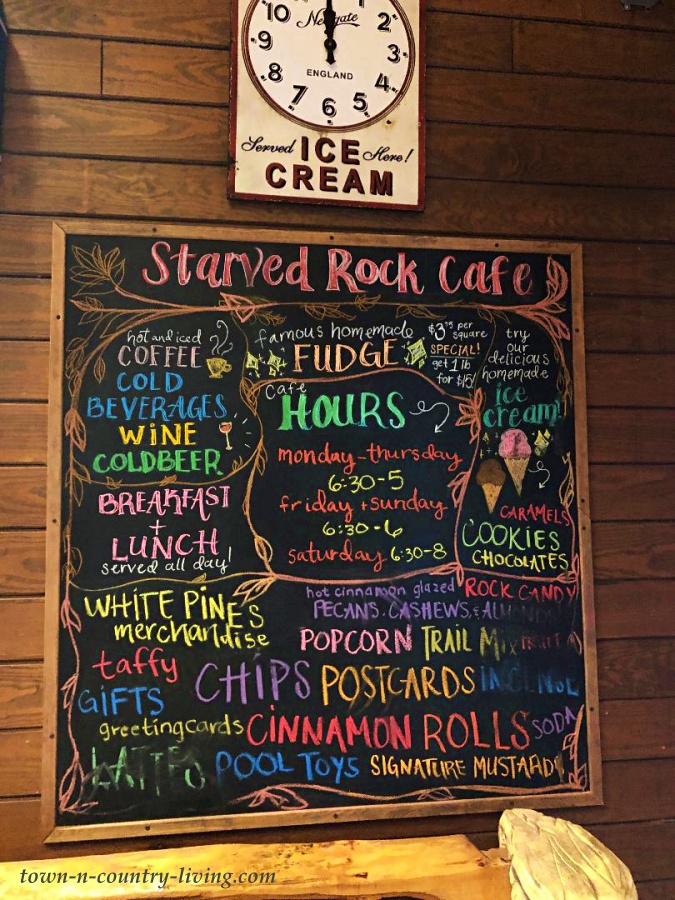 10
2
9
3
8
4
7
6
5
Newgate
ENGLAND
Served ICE Here!
CREAM
Starved Rock Cafe
hot and iced
COFFEE
COLD
BEVERAGES
WINE
COLDBEER
BREAKFAST
+
LUNCH
served all day!
famous homemade
FUDGE
per
square
SPECIAL!
get 1 lb
for $15!
Cafe
HOURS
monday-thursday
6:30-5
friday + sunday
6:30-6
saturday 6:30-8
try
our
delicious
homemade
ice
cream!
CARAMELS
COOKIES
CHOCOLATES
WHITE PINES
merchandise
hot cinnamon glazed ROCK CANDY
PECANS, CASHEWS, & ALMONDS
POPCORN TRAIL Mix
taffy CHIPS POSTCARDS INCENSE
GIFTS
greeting cards CINNAMON ROLLS SODA
LATTES POOL TOYS SIGNATURE MUSTARD
town-n-country-living.com